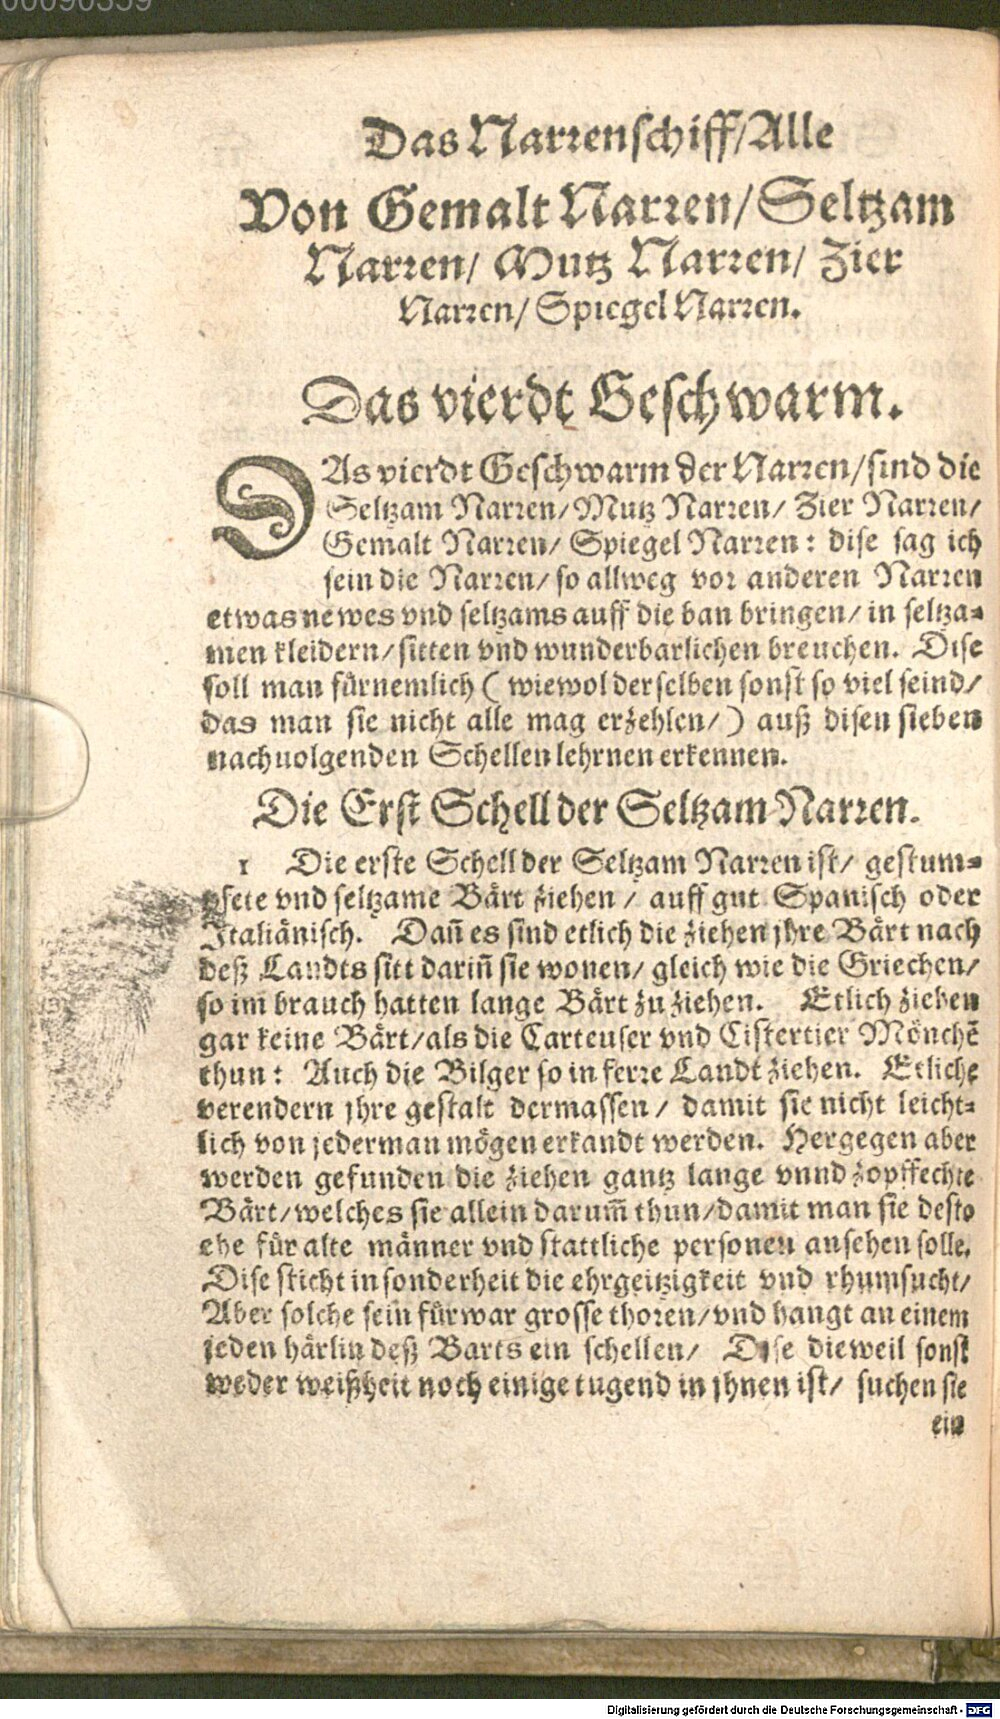 00090359
Das Narrenschiff/Alle
Von Gemalt Narren/Seltzam
Narren/ Mutz Narren/ Zier
Narren/ Spiegel Narren.
Das vierdt Geschwarm.
DAs vierdt Geschwarm der Narren/sind die
Seltzam Narren/Mutz Narren/ Zier Narren/
Gemalt Narren/ Spiegel Narren: dise sag ich
sein die Narren/ so allweg vor anderen Narren
etwas newes vnd seltzams auff die ban bringen/ in seltza-
men kleidern/sitten vnd wunderbarlichen breuchen. Dise
soll man fürnemlich ( wiewol derselben sonst so viel seind/
das man sie nicht alle mag erzehlen/) auß disen sieben
nachuolgenden Schellen lehrnen erkennen.
Die Erst Schell der Seltzam Narren.
1 Die erste Schell der Seltzam Narren ist/ gestum-
psete vnd seltzame Bärt ziehen / auff gut Spanisch oder
Italiänisch. Dañ es sind etlich die ziehen jhre Bärt nach
deß Landts sitt dariñ sie wonen/ gleich wie die Griechen/
so im̃ brauch hatten lange Bärt zu ziehen. Etlich ziehen
gar keine Bärt/als die Carteuser vnd Cistertier Mönchẽ
thun: Auch die Bilger so in ferre Landt ziehen. Etliche
verendern jhre gestalt dermassen/ damit sie nicht leicht-
lich von jederman mögen erkandt werden. Hergegen aber
werden gefunden die ziehen gantz lange vnnd zopffechte
Bärt/welches sie allein darum̃ thun/damit man sie desto
ehe für alte männer vnd stattliche personen ansehen solle.
Dise sticht insonderheit die ehrgeitzigkeit vnd rhumsucht/
Aber solche sein fürwar grosse thoren/vnd hangt an einem
jeden härlin deß Barts ein schellen/ Dise dieweil sonst
weder weißheit noch einige tugend in jhnen ist/ suchen sie
ein
Digitalisierung gefördert durch die Deutsche Forschungsgemeinschaft - DFG